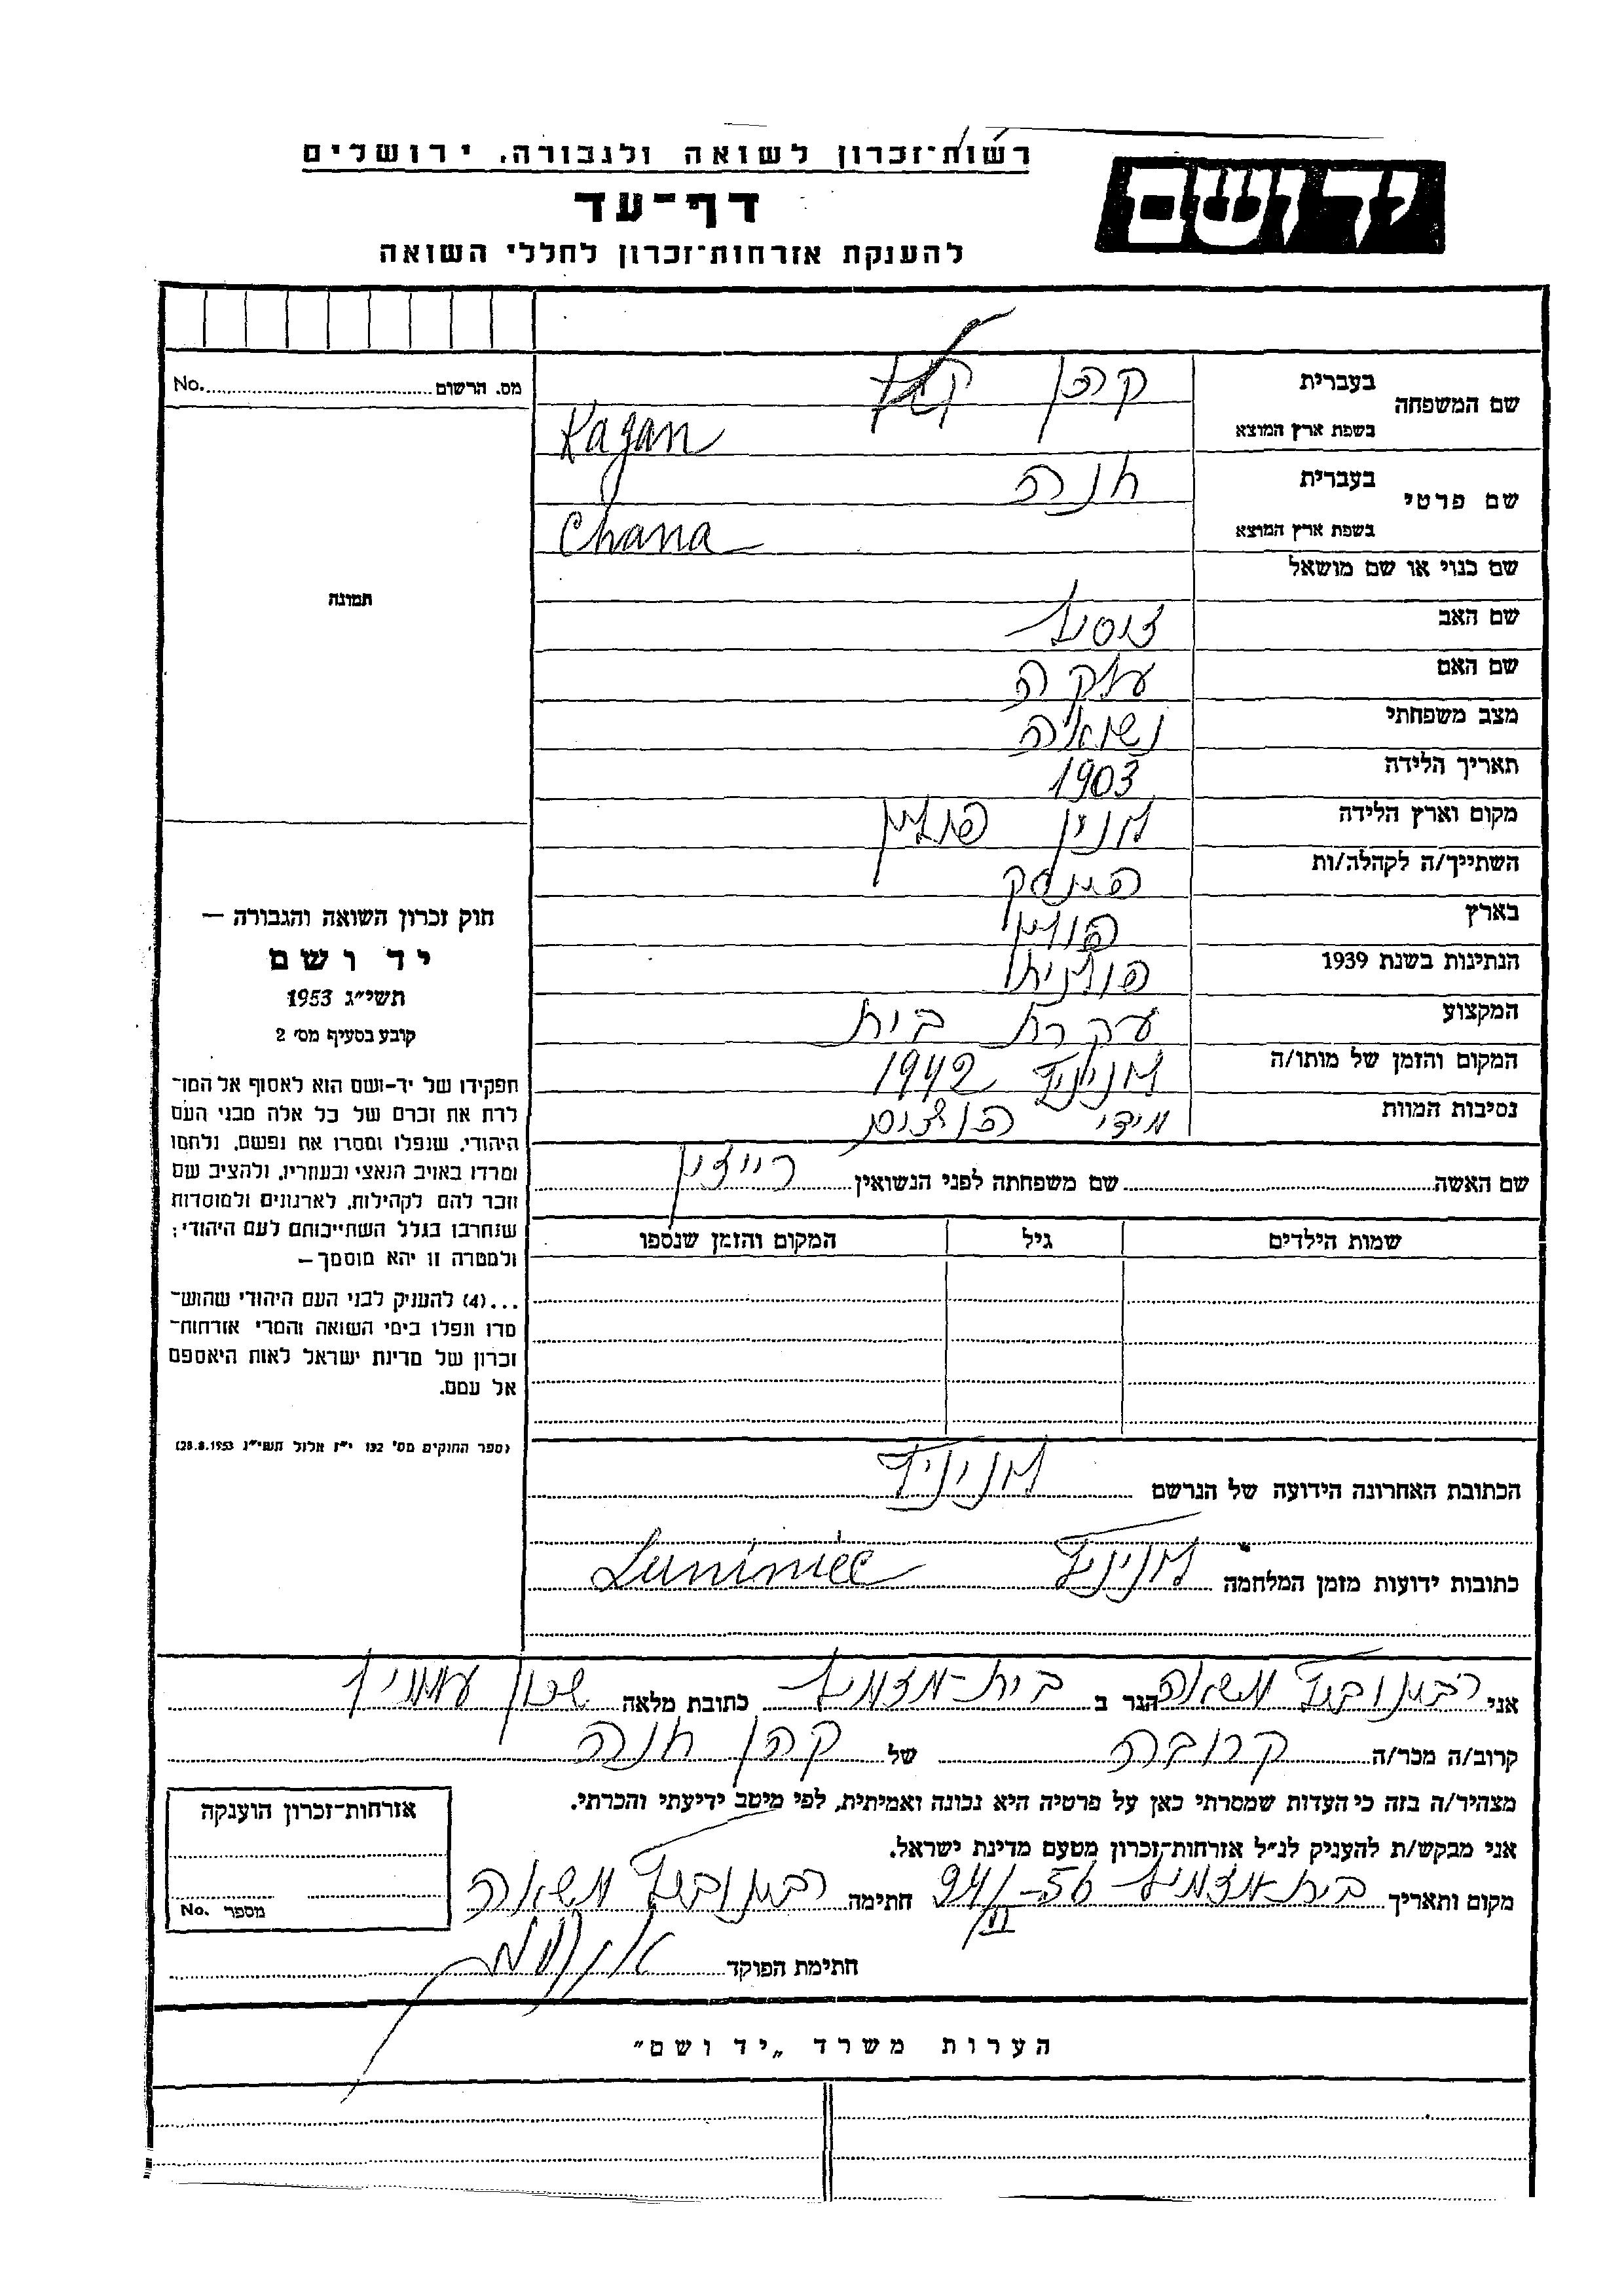 רשות־זכרון לשואה ולגבורה, ירושלים
יד ושם
דף־עד
להענקת אזרחות־זכרון לחללי השואה
מס. הרשום No.
שם המשפחה
בעברית קהן
בשפת ארץ המוצא Kagan
שם פרטי
בעברית חנה
בשפת ארץ המוצא Chana
תמונה
שם כנוי או שם מושאל
שם האב
שם האם
מצב משפחתי נשואה
תאריך הלידה 1903
מקום וארץ הלידה פולין
השתייך/ה לקהלה/ות פינסק
בארץ פולין
הנתינות בשנת 1939 פולנית
המקצוע עקרת בית
המקום והזמן של מותו/ה לוניניץ 1942
נסיבות המוות מידי
שם האשה שם משפחתה לפני הנשואין
שמות הילדים גיל המקום והזמן שנספו
הכתובת האחרונה הידועה של הנרשם לוניניץ
כתובות ידועות מזמן המלחמה לוניניץ Luniniec
חוק זכרון השואה והגבורה —
יד ושם
תשי״ג 1953
קובע בסעיף מס׳ 2
תפקידו של יד־ושם הוא לאסוף אל המו־
לדת את זכרם של כל אלה מבני העם
היהודי, שנפלו ומסרו את נפשם, נלחמו
ומרדו באויב הנאצי ובעוזריו, ולהציב שם
וזכר להם לקהילות, לארגונים ולמוסדות
שנחרבו בגלל השתייכותם לעם היהודי;
ולמטרה זו יהא מוסמך—
...(4) להעניק לבני העם היהודי שהוש־
מדו ונפלו בימי השואה והמרי אזרחות־
זכרון של מדינת ישראל לאות היאספם
אל עמם.
(ספר החוקים מס׳ 132 י״ז אלול תשי״ג 28.8.1953)
אני הגר ב כתובת מלאה שכון
קרוב/ה מכר/ה קרובה של קהן חנה
מצהיר/ה בזה כי העדות שמסרתי כאן על פרטיה היא נכונה ואמיתית, לפי מיטב ידיעתי והכרתי.
אני מבקש/ת להעניק לנ״ל אזרחות־זכרון מטעם מדינת ישראל.
מקום ותאריך חתימה
חתימת הפוקד
אזרחות־זכרון הוענקה
מספר No.
הערות משרד „יד ושם״